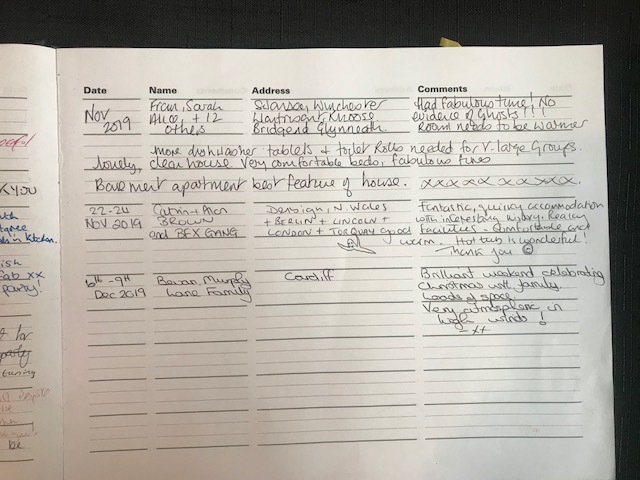 Date Name Address Comments
Nov 2019
Fran, Sarah
Alice, + 12
others
Swansea, Winchester
Llantrisant, Knoose
Bridgend Glynneath.
Had fabulous time! No
evidence of Ghosts!!!
Room needs to be warmer
more dishwasher tablets + toilet Rolls needed for V. large Groups.
lovely, clean house very comfortable beds, fabulous fires
Basement apartment best feature of house. xxxxxxxxx
22-24
NOV 2019
Catrin + Alan
BROWN
and BEX GANG
N. Wales
+ BERLIN + LINCOLN +
LONDON + TORQUAY
Fantastic, quirky accommodation
with interesting history. Really
good facilities - Comfortable and
warm. Hot tub is wonderful!
Thank you ☺
6th - 9th
Dec 2019
Bevan, Murphy
Lane Family
Cardiff
Brilliant weekend celebrating
Christmas with family.
Loads of space.
Very atmospheric in
high winds!
- xx